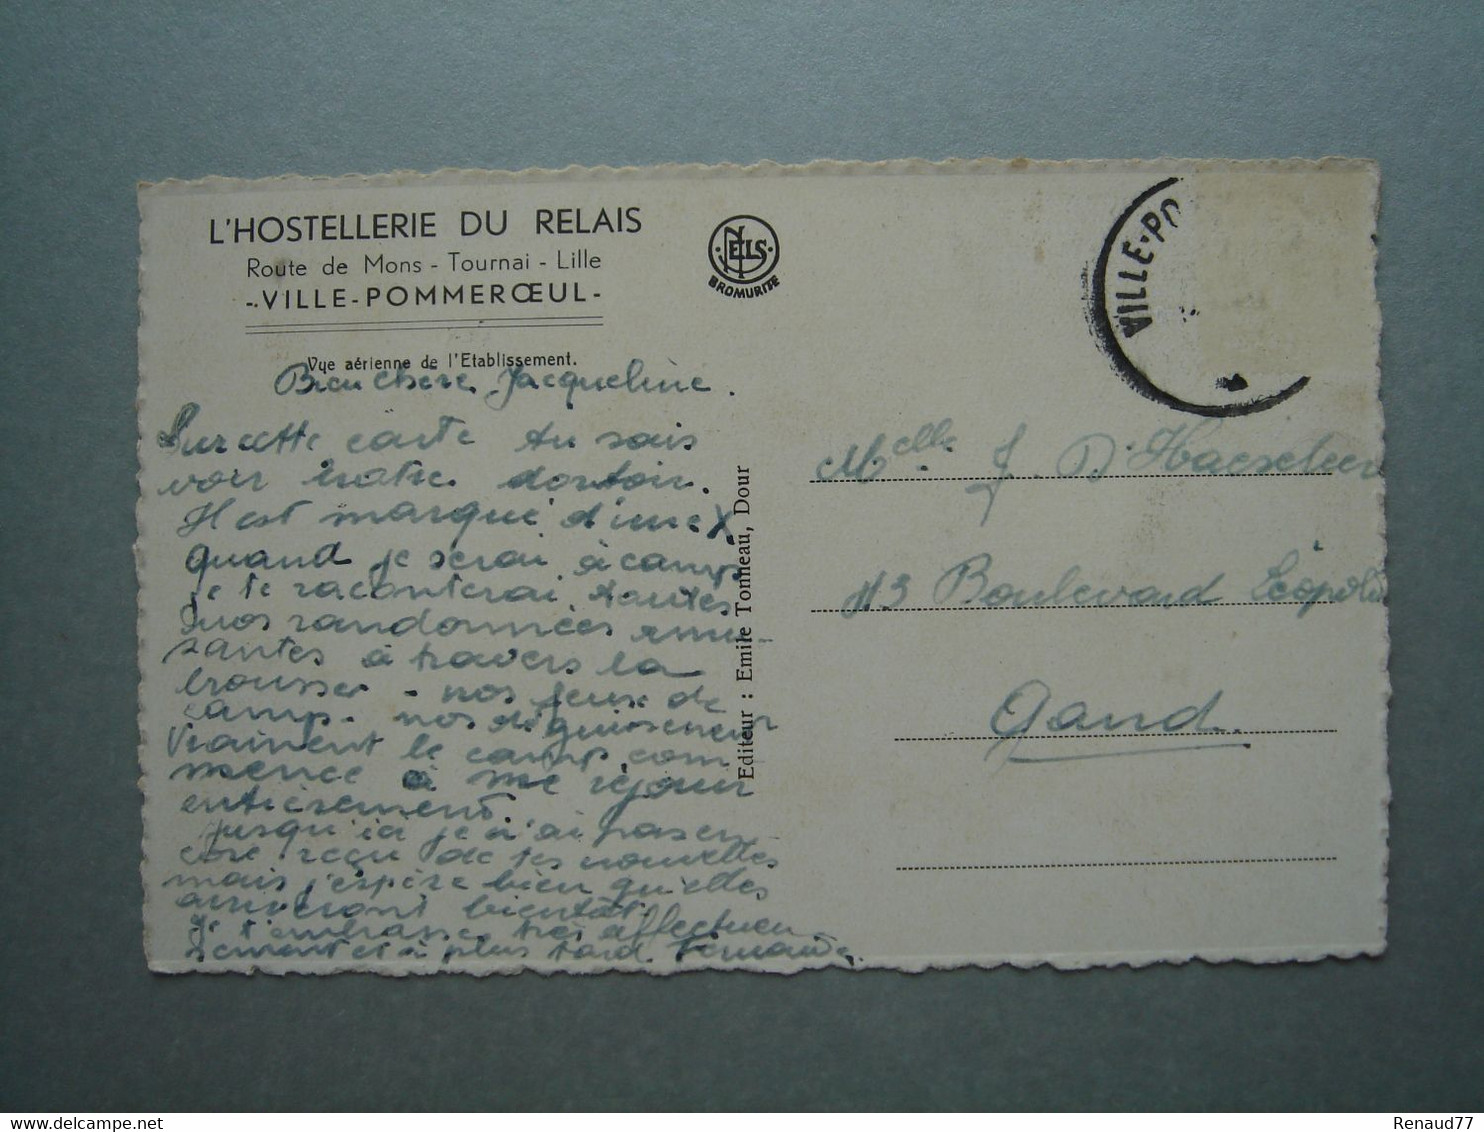 L'HOSTELLERIE DU RELAIS
Route de Mons - Tournai - Lille
- VILLE-POMMERŒUL -
Vue aérienne de l'Etablissement.
NELS
BROMURITE
VILLE-PO
Bien chère Jacqueline.
Sur cette carte tu sais
voir notre dortoir.
Il est marqué d'une X.
quand je serai à camp
je te raconterai toutes
nos randonnées amu-
santes à travers la
brousse - nos jeux de
camp - nos déguisement
Vraiment le camp com
mence à me réjouir
entièrement.
Jusqu'ici je n'ai pas en
core reçu de tes nouvelles
mais j'espère bien qu'elles
arriveront bientôt.
Je t'embrasse très affectueu
sement et à plus tard Fernande.
Editeur : Emile Tonneau, Dour
Melle J. D'Haeseleer
113 Boulevard Léopold
Gand.
www.delcampe.net
Renaud77